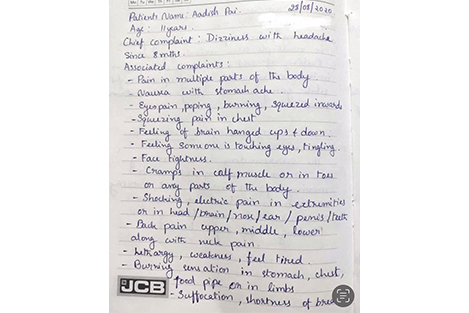 Patients Name: Aadish Pai.
29/08/2020
Age: 11 years.
Chief complaint: Dizziness with headache
Since 8 mths.
Associated complaints:
- Pain in multiple parts of the body
- Nausea with stomach ache.
- Eye pain, poping, burning, squeezed inwards
- Squeezing pain in chest
- Feeling of brain hanged ups & down.
- Feeling someone is touching eyes, tingling.
- Face tightness.
- Cramps in calf muscle or in toes
or any parts of the body.
- Shocking, electric pain in extremities
or in head / brain / nose / ear / penis / teeth
- Back pain upper, middle, lower
along with neck pain.
- Lethargy, weakness, feel tired.
- Burning sensation in stomach, chest,
food pipe or in limbs
- Suffocation, shortness of brea
JCB